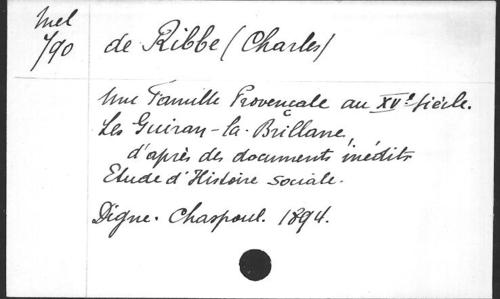 Mel
1/90
de Ribbe (Charles)
Une Famille Provençale au XVe siècle.
Les Guiran-la-Brillane,
d'après des documents inédits
Etude d'Histoire sociale.
Digne. Chaspoul. 1894.